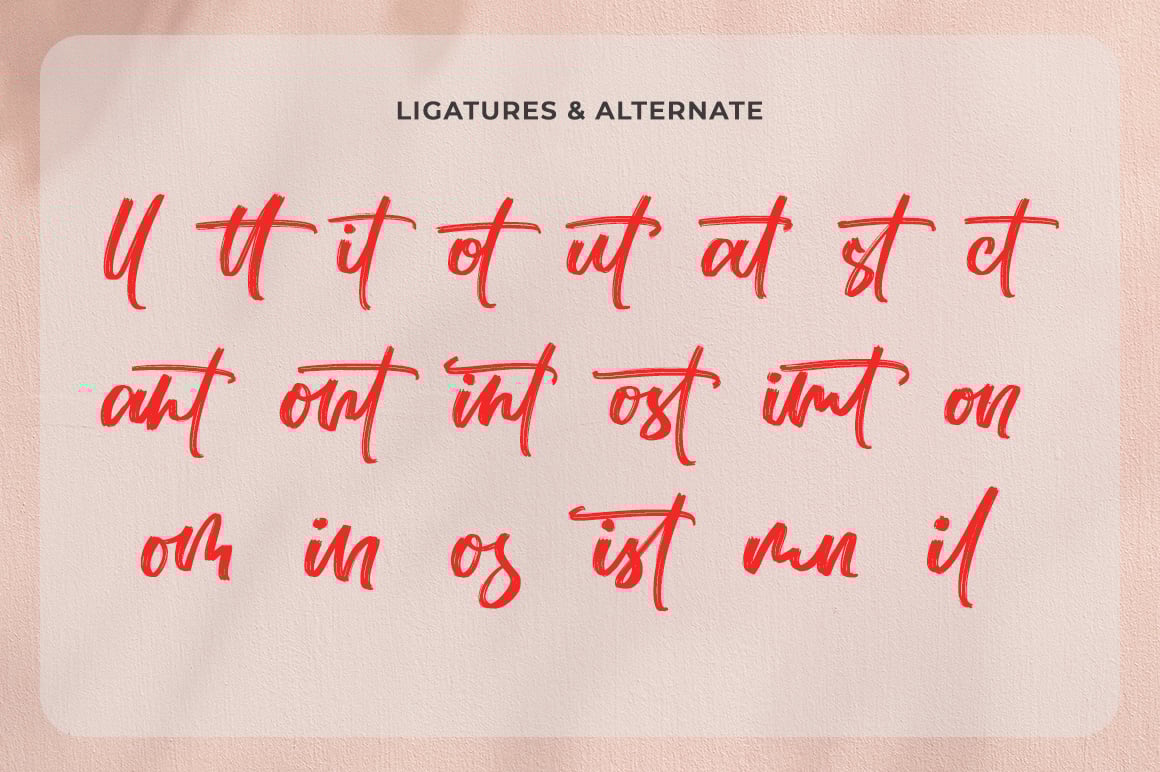 LIGATURES & ALTERNATE
ll tt it ot ut at st ct
ant ont int ost imt on
om in os ist mn il